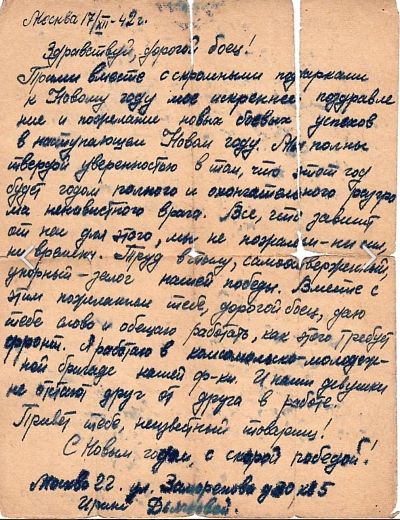 Москва 17/XII-42 г.
Здравствуй, дорогой боец!
Прими вместе с скромными подарками
к Новому году мое искреннее поздравле
ние и пожелание новых боевых успехов
в наступающем Новом году. Мы полны
твердой уверенностью в том, что этот год
будет годом полного и окончательного разгро
ма ненавистного врага. Все, что зависит
от нас для этого, мы не пожалеем-ни сил,
ни времени. Труд в тылу, самоотверженный,
упорный-залог нашей победы. Вместе с
этим пожеланием тебе, дорогой боец, даю
тебе слово и обещаю работать, как этого требует
фронт. Я работаю в комсомольско-молодеж-
ной бригаде нашей ф-ки. И наши девушки
не отстают друг от друга в работе.
Привет тебе, неизвестный товарищ!
С Новым годом, с скорой победой!
Москва 22. ул. Заморенова д 30 кв 5
Ирине